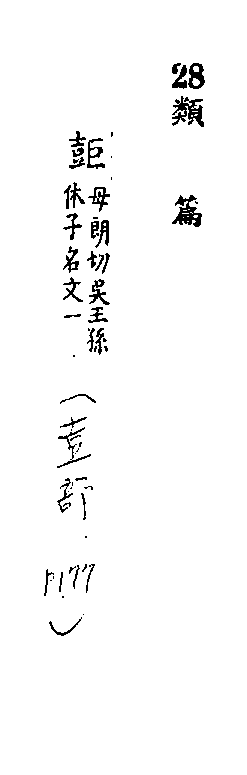 28類篇
壾
母朗切吳王孫
休子名文一
(壴部. P177)